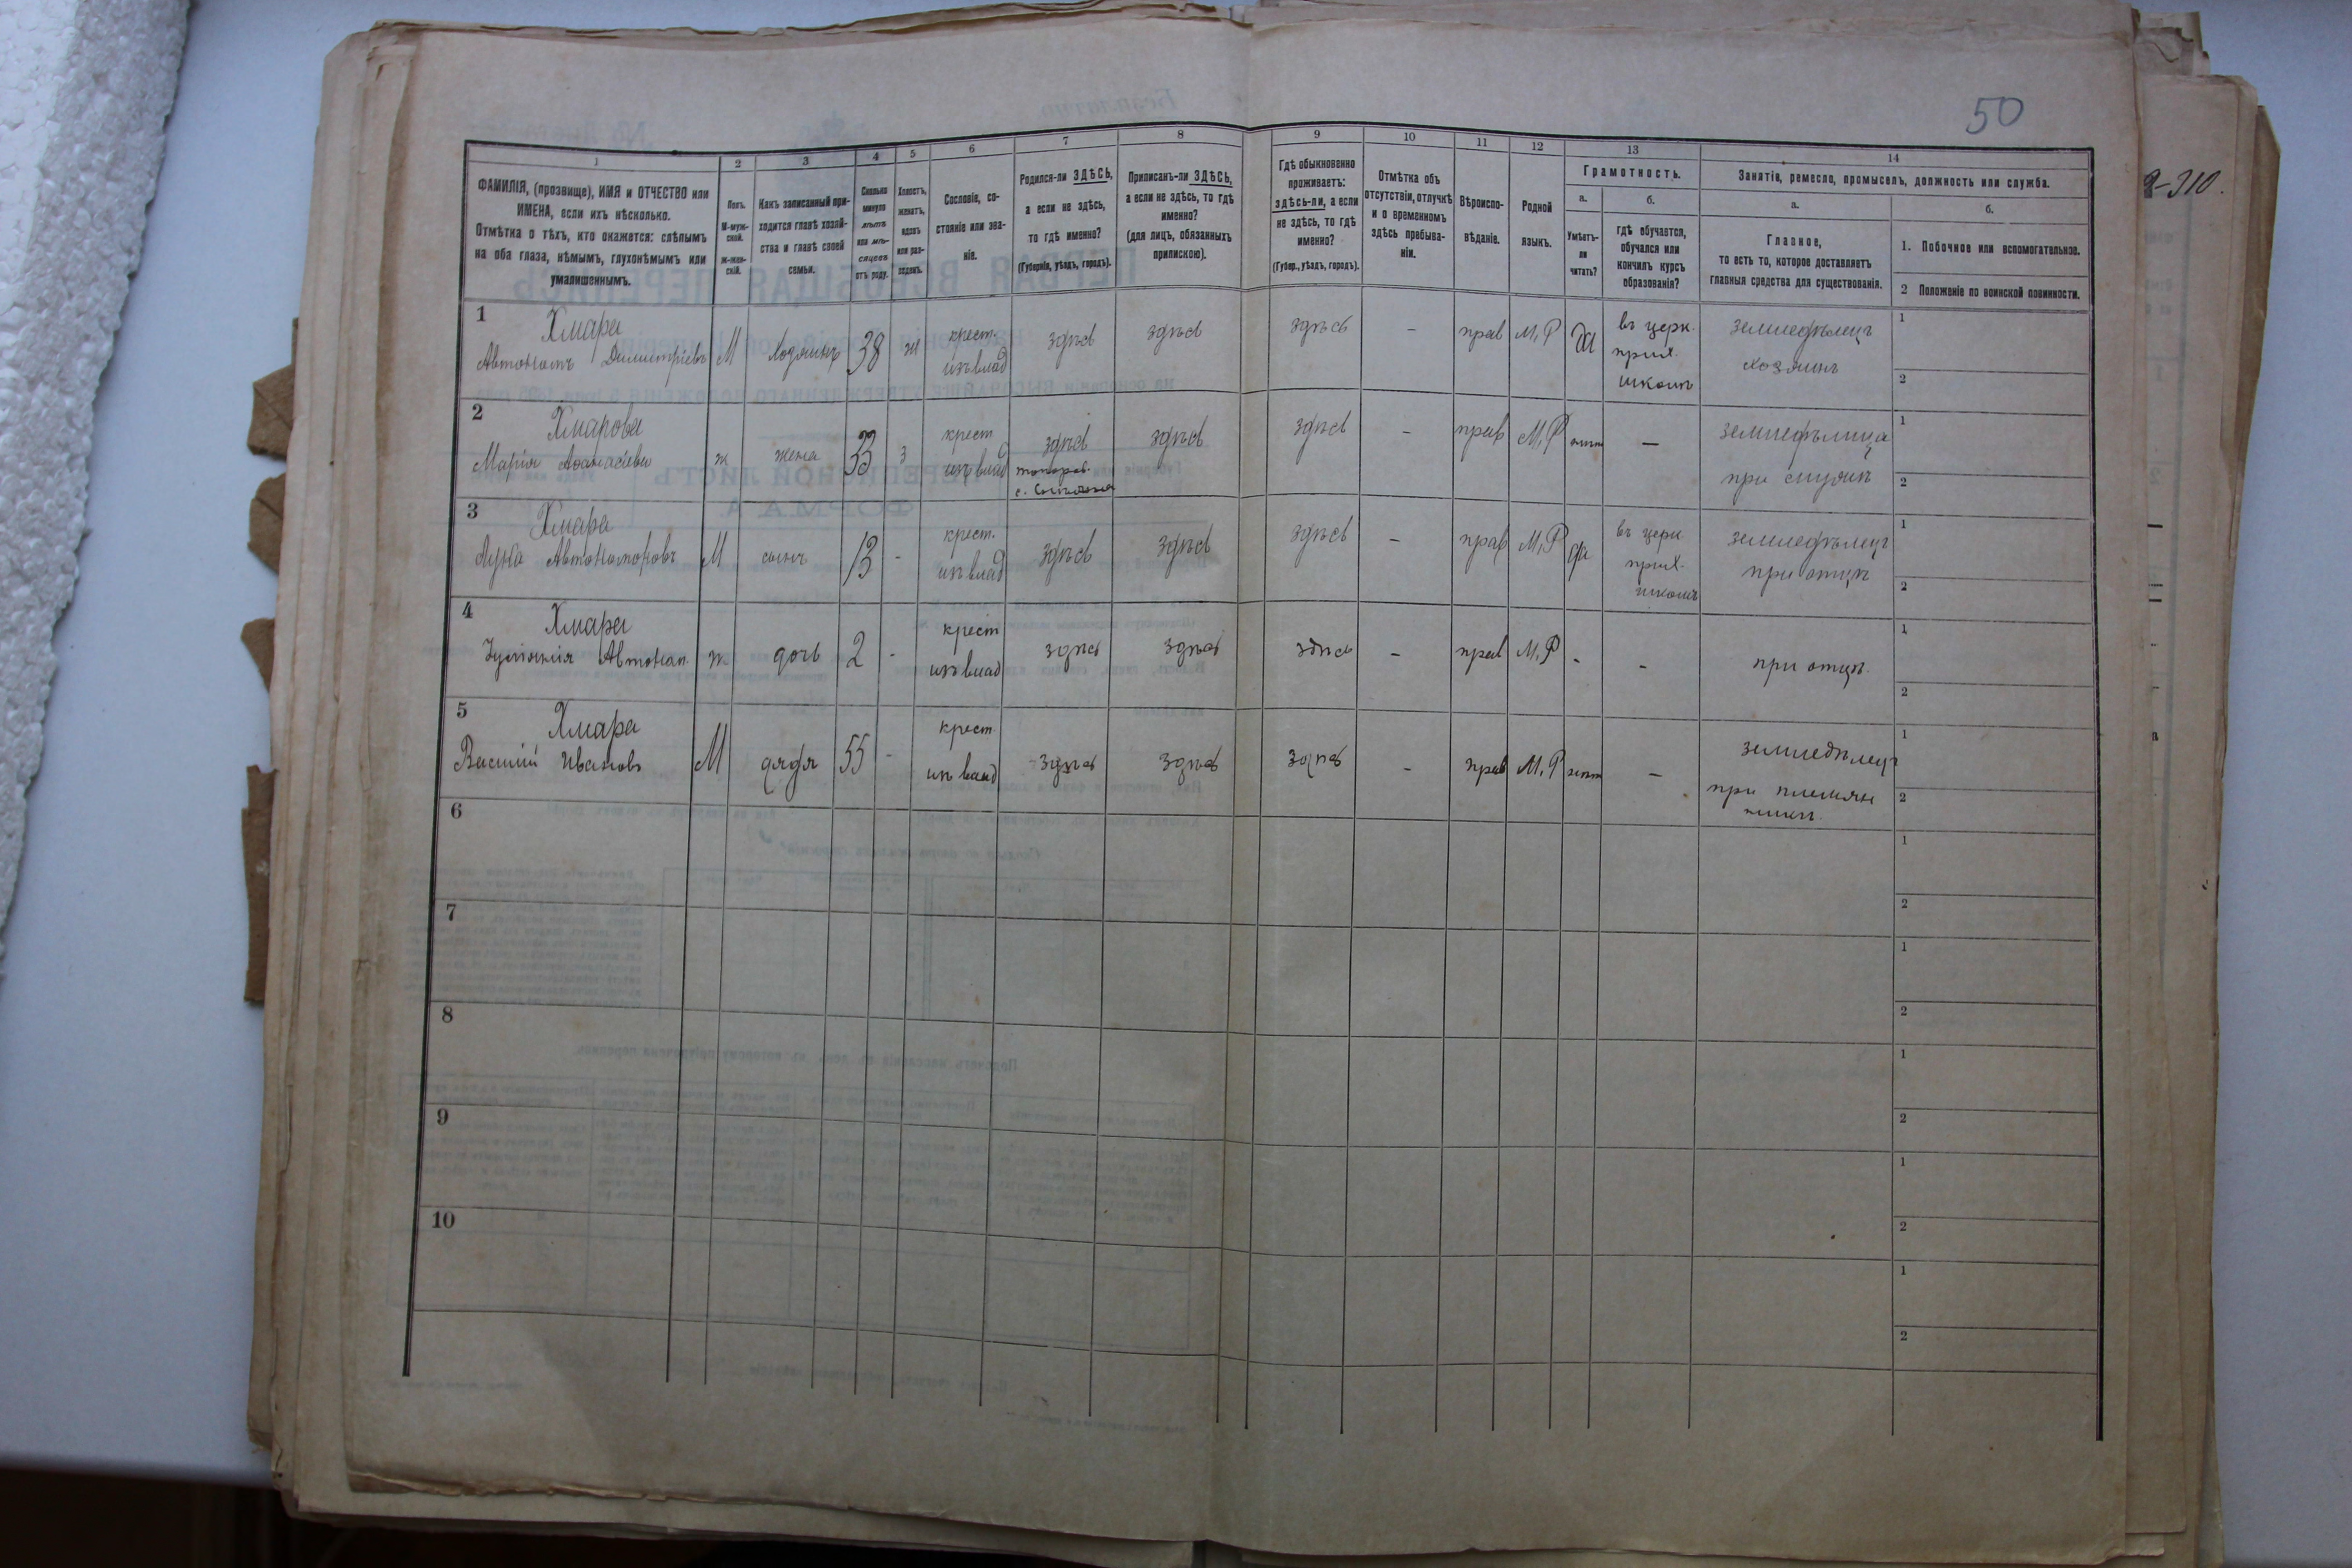 50
1 2 3 4 5 6 7 8 9 10 11 12 13 14
ФАМИЛІЯ, (прозвище), ИМЯ и ОТЧЕСТВО или
ИМЕНА, если ихъ нѣсколько.
Отмѣтка о тѣхъ, кто окажется: слѣпымъ
на оба глаза, нѣмымъ, глухонѣмымъ или
умалишеннымъ.
Полъ.
М-муж-
ской.
Ж-жен-
скій.
Какъ записанный при-
ходится главѣ хозяй-
ства и главѣ своей
семьи.
Сколько
минуло
лѣтъ
или мѣ-
сяцевъ
отъ роду.
Холостъ,
женатъ,
вдовъ
или раз-
веденъ.
Сословіе, со-
стояніе или зва-
ніе.
Родился-ли ЗДѢСЬ,
а если не здѣсь,
то гдѣ именно?
(Губернія, уѣздъ, городъ).
Приписанъ-ли ЗДѢСЬ,
а если не здѣсь, то гдѣ
именно?
(для лицъ, обязанныхъ
припискою).
Гдѣ обыкновенно
проживаетъ:
здѣсь-ли, а если
не здѣсь, то гдѣ
именно?
(Губер., уѣздъ, городъ).
Отмѣтка объ
отсутствіи, отлучкѣ
и о временномъ
здѣсь пребыва-
ніи.
Вѣроиспо-
вѣданіе.
Родной
языкъ.
Грамотность.
а.
Умѣетъ-
ли
читать?
б.
гдѣ обучается,
обучался или
кончилъ курсъ
образованія?
Занятіе, ремесло, промыселъ, должность или служба.
а.
Главное,
то есть то, которое доставляетъ
главныя средства для существованія.
б.
1. Побочное или вспомогательное.
2 Положеніе по воинской повинности.
1 Хмара
Автономъ Димитріевъ М хозяинъ 38 ж крест. изъ влад здѣсь здѣсь здѣсь - прав М,Р да въ церк. прих. школѣ земледѣлецъ хозяинъ 1 2
2 Хмарова
Марія Аѳанасіева ж жена 33 з крест изъ влад здѣсь здѣсь здѣсь - прав М,Р нѣт - земледѣлица при мужѣ 1 2
3 Хмара
Лука Автономовъ М сынъ 13 - крест. изъ влад здѣсь здѣсь здѣсь - прав М,Р да въ церк прих. школѣ земледѣлецъ при отцѣ 1 2
4 Хмара
Автоном. ж дочь 2 - крест изъ влад здѣсь здѣсь здѣсь - прав М,Р - - при отцѣ. 1 2
5 Хмара
Василій Ивановъ М дядя 55 - крест изъ влад здѣсь здѣсь здѣсь - прав М,Р нѣт - земледѣлецъ при племян никѣ. 1 2
6 1 2
7 1 2
8 1 2
9 1 2
10 1 2
310.